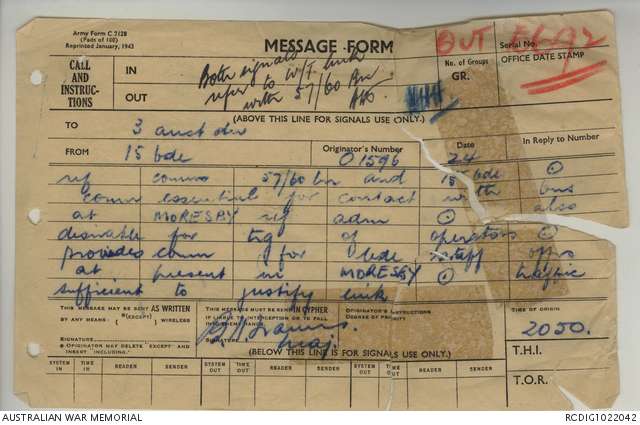 Army Form C.2128
(Pads of 100)
Reprinted January, 1943
MESSAGE FORM
OUT E692
Serial No.
CALL AND INSTRUCTIONS
IN
OUT
Both signals
refer to W/T link
with 57/60 Bn
No. of Groups
GR.
OFFICE DATE STAMP
(ABOVE THIS LINE FOR SIGNALS USE ONLY)
TO 3 aust div
FROM 15 bde
Originator's Number O1596
Date 24
In Reply to Number
ref comms 57/60 bn and 15 bde ⊙
comn essential for contact with bns
at MORESBY ref adm ⊙ also
desirable for tng of operators ⊙
provides comn for bde staff offrs
at present in MORESBY ⊙ traffic
sufficient to justify link
THIS MESSAGE MAY BE SENT AS WRITTEN
BY ANY MEANS (EXCEPT) WIRELESS
SIGNATURE
ORIGINATOR MAY DELETE "EXCEPT" AND
INSERT "INCLUDING."
THIS MESSAGE MUST BE SENT IN CYPHER
IF LIABLE TO INTERCEPTION OR TO FALL
INTO ENEMY HANDS.
SIGNATURE
Maj.
ORIGINATOR'S INSTRUCTIONS
DEGREE OF PRIORITY
TIME OF ORIGIN
2050.
(BELOW THIS LINE IS FOR SIGNALS USE ONLY)
T.H.I.
T.O.R.
SYSTEM IN TIME IN READER SENDER SYSTEM OUT TIME OUT READER SENDER SYSTEM OUT TIME OUT READER SENDER
AUSTRALIAN WAR MEMORIAL
RCDIG1022042